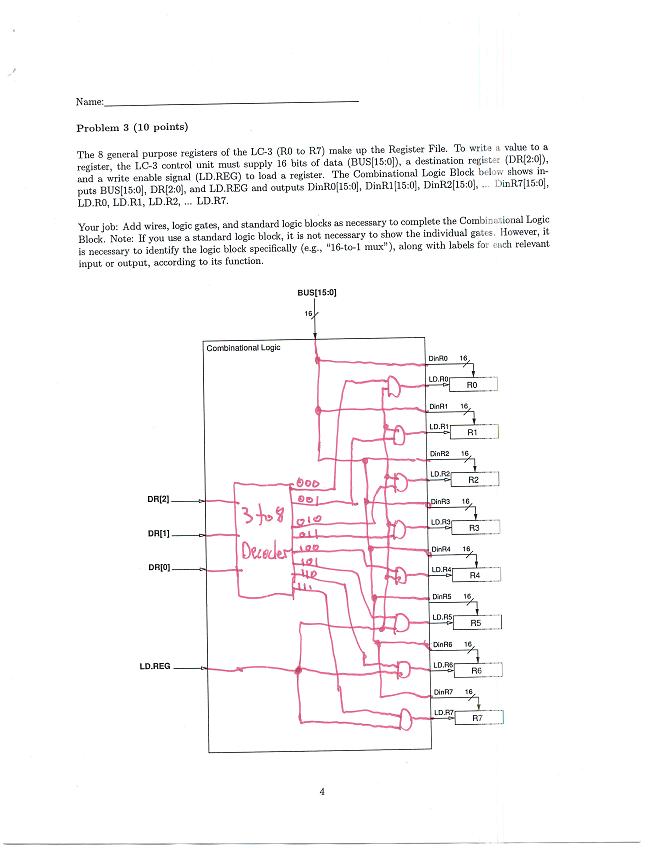 Name:
Problem 3 (10 points)
The 8 general purpose registers of the LC-3 (R0 to R7) make up the Register File. To write a value to a
register, the LC-3 control unit must supply 16 bits of data (BUS[15:0]), a destination register (DR[2:0]),
and a write enable signal (LD.REG) to load a register. The Combinational Logic Block below shows in-
puts BUS[15:0], DR[2:0], and LD.REG and outputs DinR0[15:0], DinR1[15:0], DinR2[15:0], ... DinR7[15:0],
LD.R0, LD.R1, LD.R2, ... LD.R7.
Your job: Add wires, logic gates, and standard logic blocks as necessary to complete the Combinational Logic
Block. Note: If you use a standard logic block, it is not necessary to show the individual gates. However, it
is necessary to identify the logic block specifically (e.g., "16-to-1 mux"), along with labels for each relevant
input or output, according to its function.
BUS[15:0]
16
Combinational Logic
DinR0 16
LD.R0 R0
DinR1 16
LD.R1 R1
DinR2 16
LD.R2 R2
DinR3 16
LD.R3 R3
DinR4 16
LD.R4 R4
DinR5 16
LD.R5 R5
DinR6 16
LD.R6 R6
DinR7 16
LD.R7 R7
DR[2]
DR[1]
DR[0]
LD.REG
3 to 8
Decoder
000
001
010
011
100
101
110
111
4